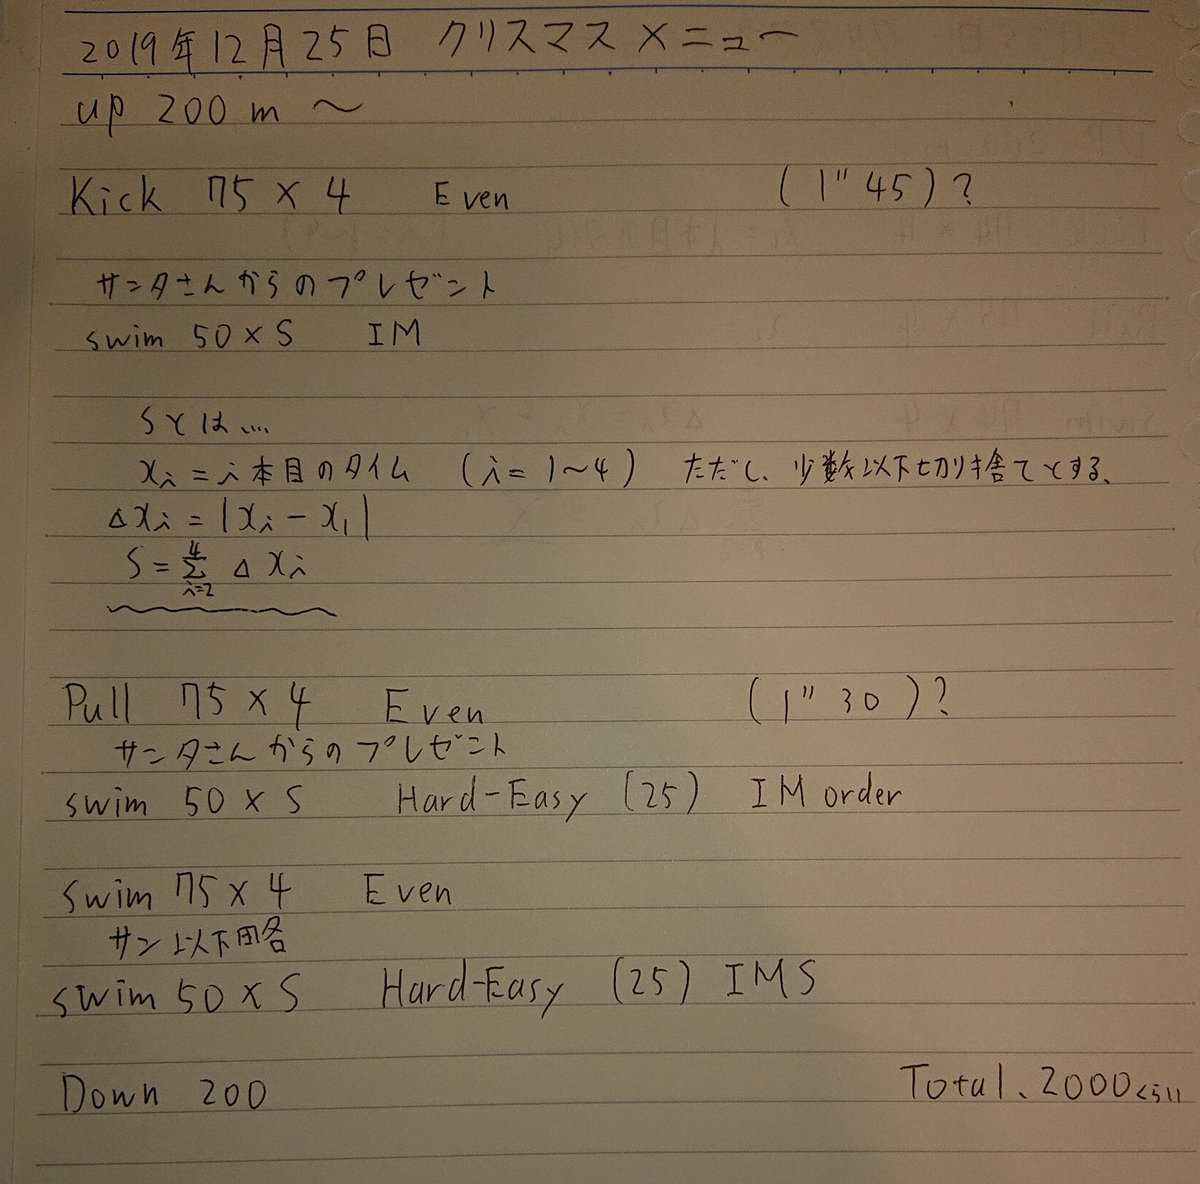 2019年12月25日 クリスマスメニュー
up 200 m 〜
Kick 75 × 4 Even (1" 45)?
サンタさんからのプレゼント
swim 50 × S IM
Sとは....
xi = i本目のタイム (i = 1〜4) ただし、少数以下切り捨てとする、
Δxi = |xi − x1|
S = Σ(i=2→4) Δxi
Pull 75 × 4 Even (1" 30)?
サンタさんからのプレゼント
swim 50 × S Hard-Easy (25) IM order
swim 75 × 4 Even
サン以下略
swim 50 × S Hard-Easy (25) IMS
Down 200 Total、2000くらい